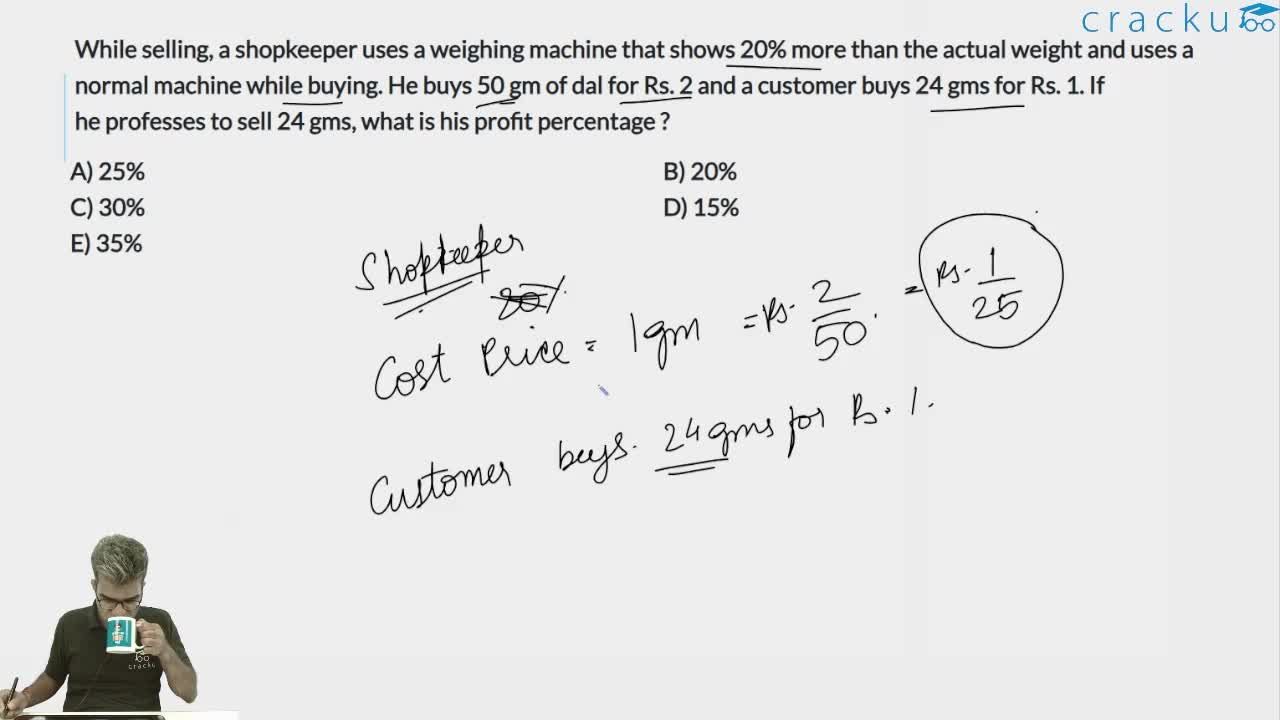 cracku
While selling, a shopkeeper uses a weighing machine that shows 20% more than the actual weight and uses a
normal machine while buying. He buys 50 gm of dal for Rs. 2 and a customer buys 24 gms for Rs. 1. If
he professes to sell 24 gms, what is his profit percentage ?
A) 25%
B) 20%
C) 30%
D) 15%
E) 35%
Shopkeeper
20%
Cost Price = 1gm = Rs. 2/50. = Rs. 1/25
Customer buys. 24 gms for Rs. 1.
cracku